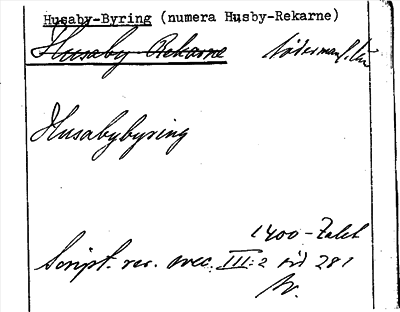 Husaby-Byring (numera Husby-Rekarne)
Husaby Rekarne Södermanl. län
Husabybyring
1400-Talet
Script. rer. svec. III:2 sid 281